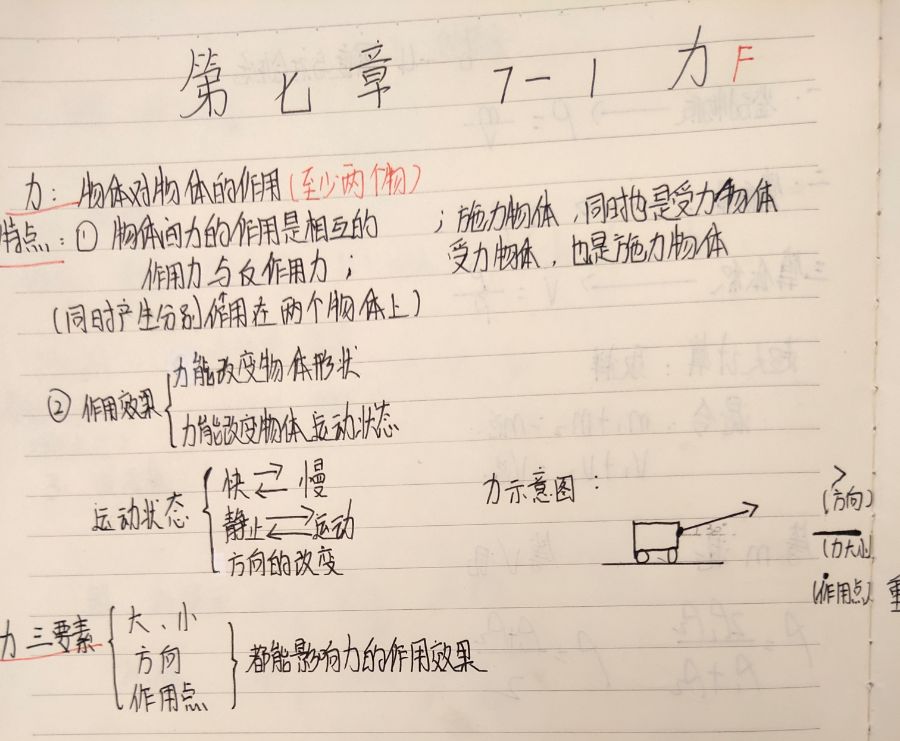 第七章 7-1 力 F
力：物体对物体的作用(至少两个物)
特点：① 物体间力的作用是相互的 ；施力物体，同时也是受力物体
作用力与反作用力； 受力物体，也是施力物体
(同时产生分别作用在两个物体上)
② 作用效果
力能改变物体形状
力能改变物体运动状态
运动状态
快⇄慢
静止⇄运动
方向的改变
力示意图：
(方向)
(力大小)
(作用点)
重
力三要素
大、小
方向
作用点
都能影响力的作用效果